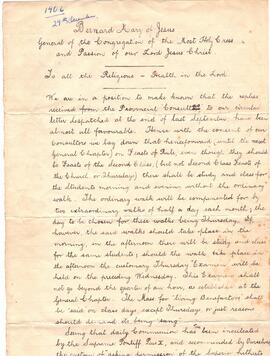 1906
29th
Bernard Mary of Jesus
General of the Congregation of the Most Holy Cross
and Passion of our Lord Jesus Christ.
To all the Religious – Health in the Lord
We are in a position to make known that the replies
received from the Provincial Consults to our circular
letter despatched at the end of last September have been
almost all favourable. Hence with the consent of our
Consultors we lay down that henceforward until the next
General Chapter, on Feasts of Rule, even though they should
be Feasts of the Second Class, (but not Second Class Feasts of
the Church or Thursdays) there shall be study and class for
the Students morning and evening without the ordinary
walk. The ordinary walk will be compensated for by
two extraordinary walks of half a day each month, the
day to be chosen for these walks being Thursday. If,
however, the said walks should take place in the
morning, in the afternoon there will be study and class
for the same students; should the walk take place in
the afternoon the customary Thursday Examen will be
held on the preceding Wednesday. This Examen shall
not go beyond the quarter of an hour, as established at the
General Chapter. The Mass for living Benefactors shall
be said on class days, except Thursday or just reasons
should demand its being sung.
Seeing that daily Communion has been inculcated
by the Supreme Pontiff Pius X, and recommended by Ourselves
the custom of asking permission of the Superior